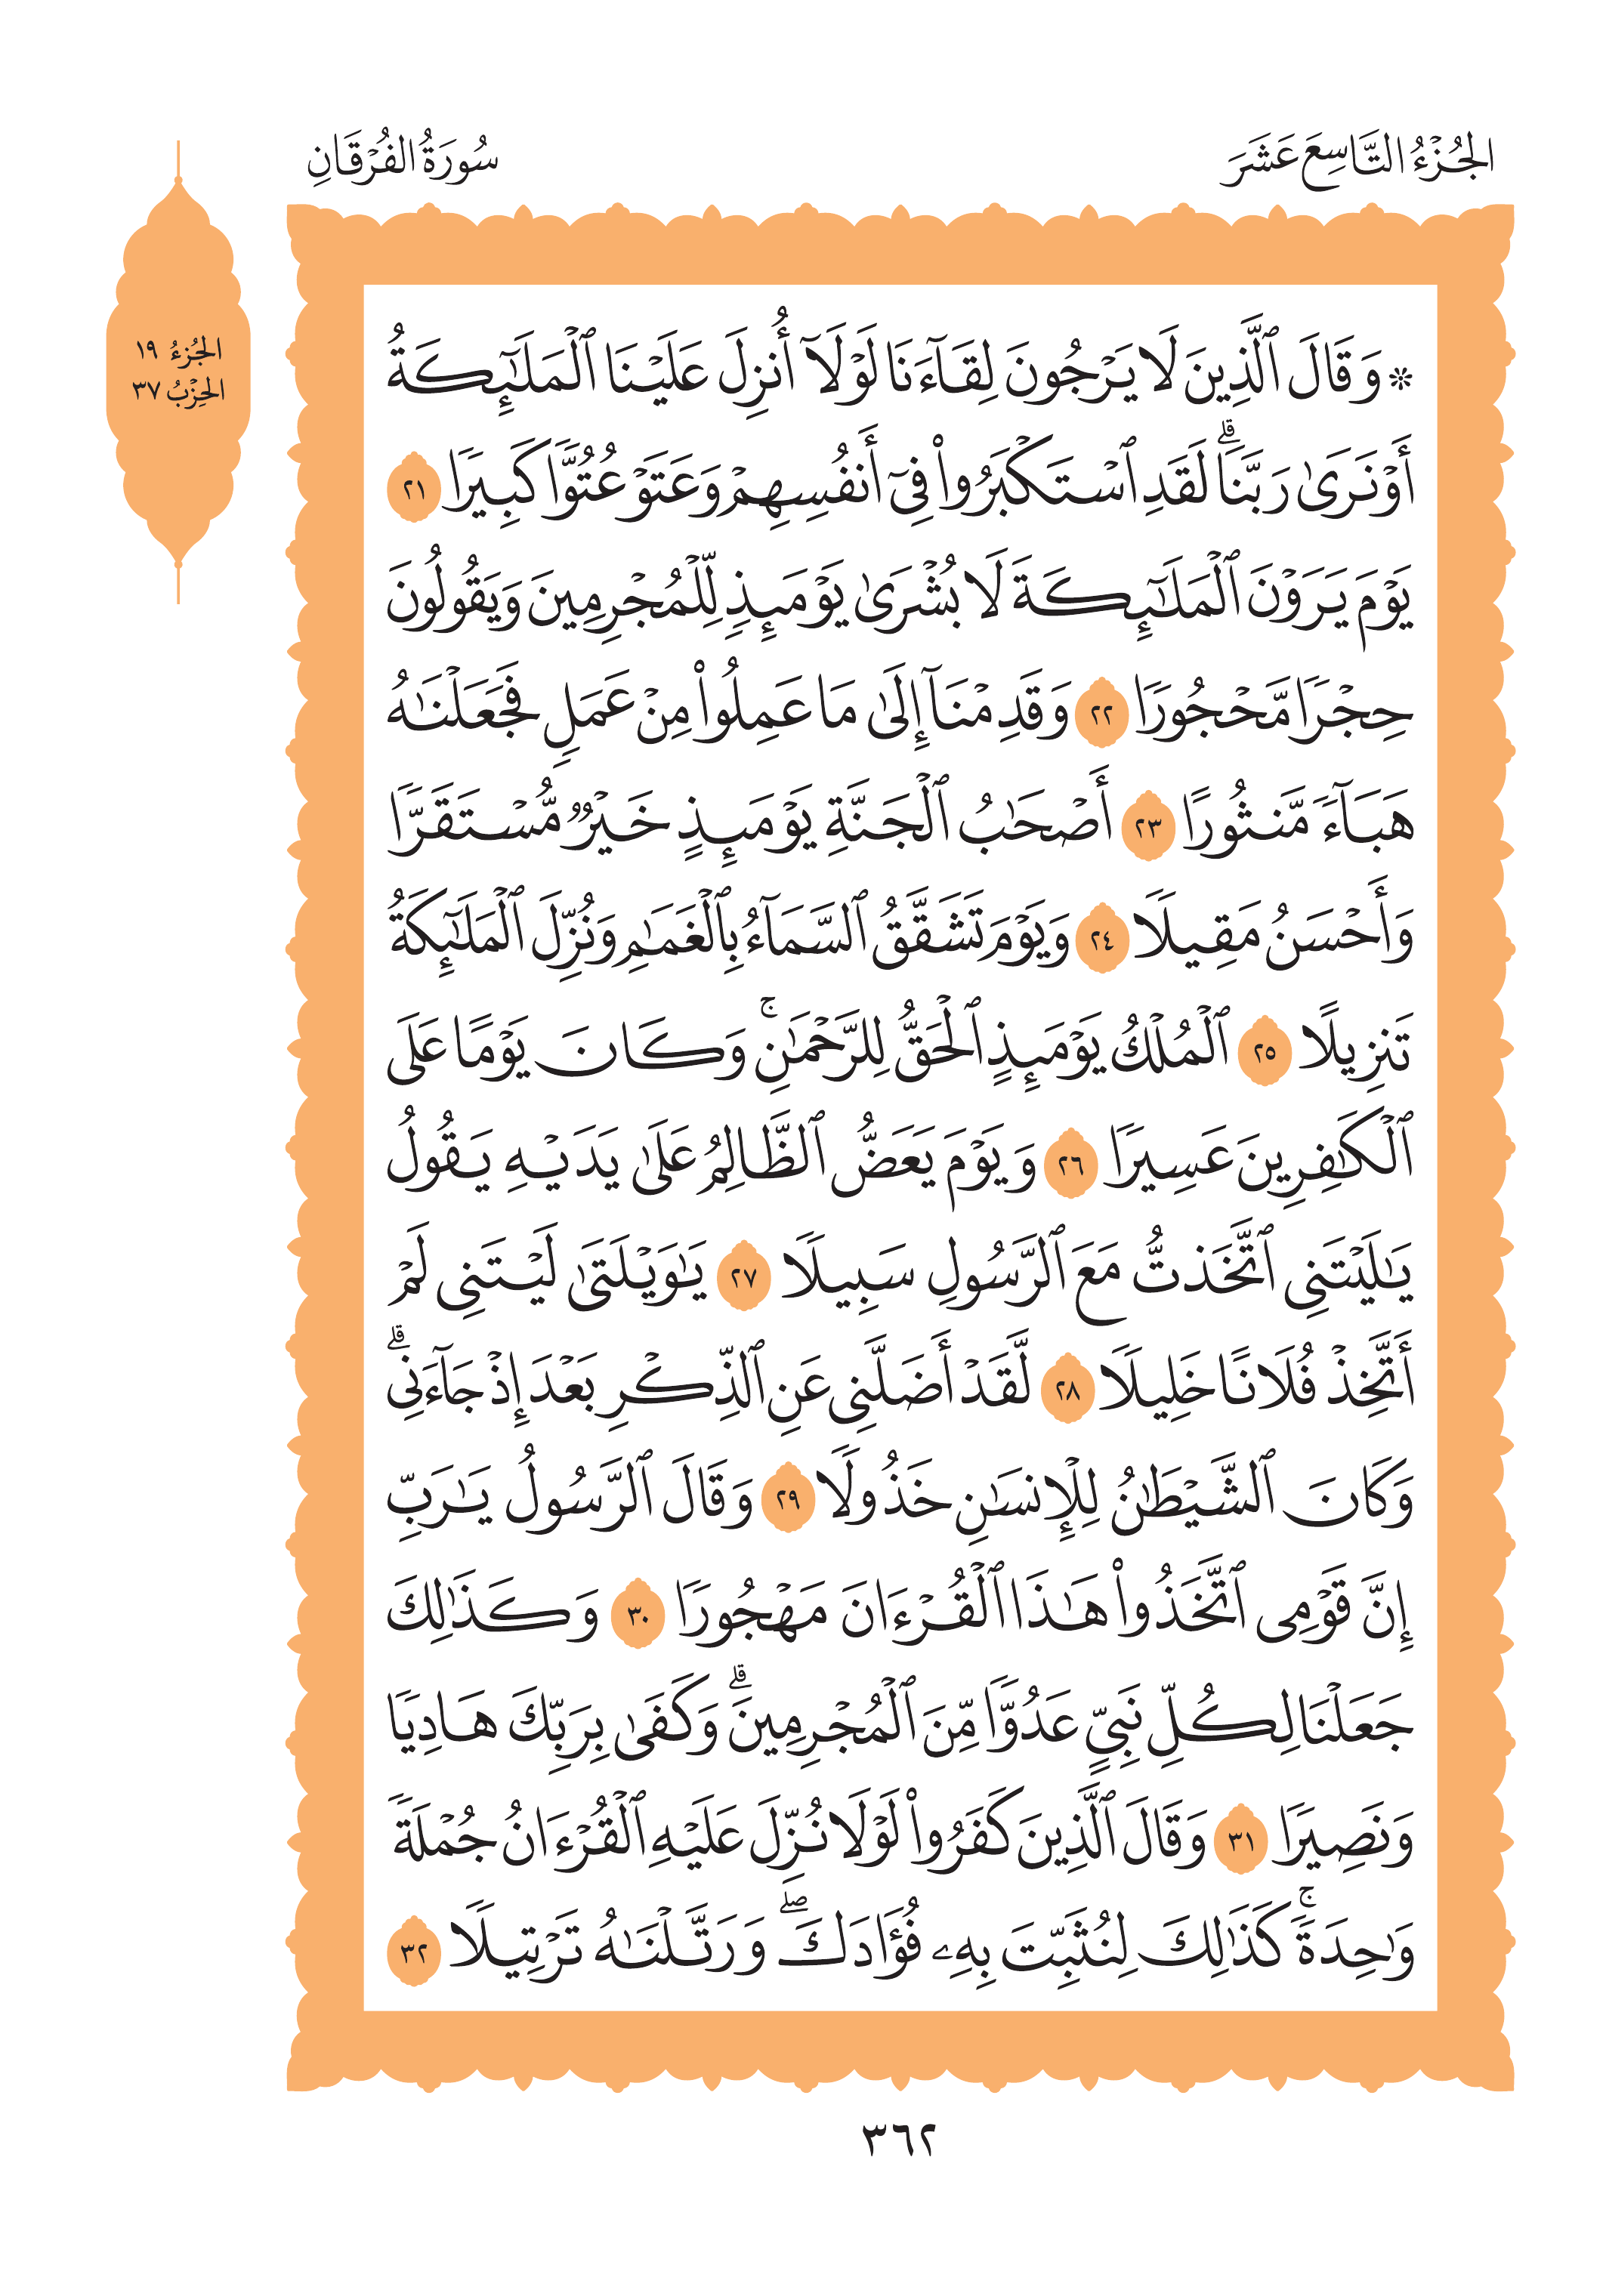 الجُزْءُ التَّاسِعَ عَشَرَ
سُورَةُ الفُرْقَانِ
الجُزءُ ١٩
الحِزْبُ ٣٧
۞ وَقَالَ ٱلَّذِينَ لَا يَرْجُونَ لِقَآءَنَا لَوْلَآ أُنزِلَ عَلَيْنَا ٱلْمَلَٰٓئِكَةُ
أَوْ نَرَىٰ رَبَّنَاۗ لَقَدِ ٱسْتَكْبَرُواْ فِىٓ أَنفُسِهِمْ وَعَتَوْ عُتُوًّا كَبِيرًا ٢١
يَوْمَ يَرَوْنَ ٱلْمَلَٰٓئِكَةَ لَا بُشْرَىٰ يَوْمَئِذٍ لِّلْمُجْرِمِينَ وَيَقُولُونَ
حِجْرًا مَّحْجُورًا ٢٢ وَقَدِمْنَآ إِلَىٰ مَا عَمِلُواْ مِنْ عَمَلٍ فَجَعَلْنَٰهُ
هَبَآءً مَّنثُورًا ٢٣ أَصْحَٰبُ ٱلْجَنَّةِ يَوْمَئِذٍ خَيْرٌ مُّسْتَقَرًّا
وَأَحْسَنُ مَقِيلًا ٢٤ وَيَوْمَ تَشَقَّقُ ٱلسَّمَآءُ بِٱلْغَمَٰمِ وَنُزِّلَ ٱلْمَلَٰٓئِكَةُ
تَنزِيلًا ٢٥ ٱلْمُلْكُ يَوْمَئِذٍ ٱلْحَقُّ لِلرَّحْمَٰنِۚ وَكَانَ يَوْمًا عَلَى
ٱلْكَٰفِرِينَ عَسِيرًا ٢٦ وَيَوْمَ يَعَضُّ ٱلظَّالِمُ عَلَىٰ يَدَيْهِ يَقُولُ
يَٰلَيْتَنِى ٱتَّخَذتُّ مَعَ ٱلرَّسُولِ سَبِيلًا ٢٧ يَٰوَيْلَتَىٰ لَيْتَنِى لَمْ
أَتَّخِذْ فُلَانًا خَلِيلًا ٢٨ لَّقَدْ أَضَلَّنِى عَنِ ٱلذِّكْرِ بَعْدَ إِذْ جَآءَنِىۗ
وَكَانَ ٱلشَّيْطَٰنُ لِلْإِنسَٰنِ خَذُولًا ٢٩ وَقَالَ ٱلرَّسُولُ يَٰرَبِّ
إِنَّ قَوْمِى ٱتَّخَذُواْ هَٰذَا ٱلْقُرْءَانَ مَهْجُورًا ٣٠ وَكَذَٰلِكَ
جَعَلْنَا لِكُلِّ نَبِىٍّ عَدُوًّا مِّنَ ٱلْمُجْرِمِينَۗ وَكَفَىٰ بِرَبِّكَ هَادِيًا
وَنَصِيرًا ٣١ وَقَالَ ٱلَّذِينَ كَفَرُواْ لَوْلَا نُزِّلَ عَلَيْهِ ٱلْقُرْءَانُ جُمْلَةً
وَٰحِدَةًۚ كَذَٰلِكَ لِنُثَبِّتَ بِهِۦ فُؤَادَكَۖ وَرَتَّلْنَٰهُ تَرْتِيلًا ٣٢
٣٦٢